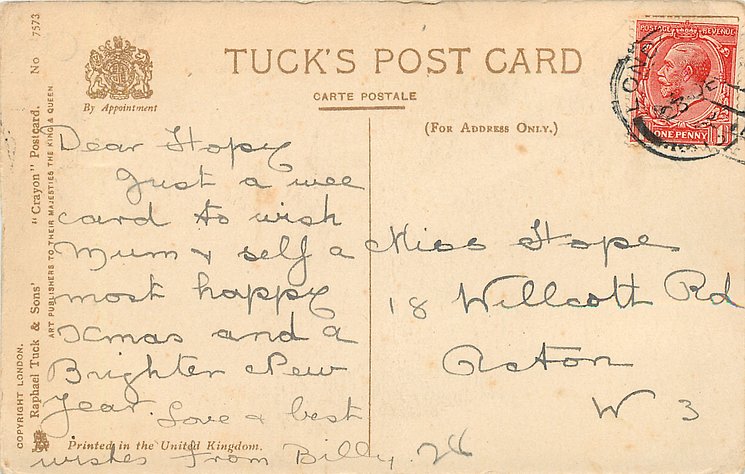 TUCK'S POST CARD
CARTE POSTALE
By Appointment
(FOR ADDRESS ONLY.)
POSTAGE REVENUE
ONE PENNY
LON
Dear Hope
Just a wee
card to wish
Mum & self a
most happy
Xmas and a
Brighter New
Year. Love & best
wishes From Billy. 26
Miss Hope
18 Willcott Rd
Acton
W 3
Printed in the United Kingdom.
COPYRIGHT LONDON.
Raphael Tuck & Sons' "Crayon" Postcard. No 7573
ART PUBLISHERS TO THEIR MAJESTIES THE KING & QUEEN.